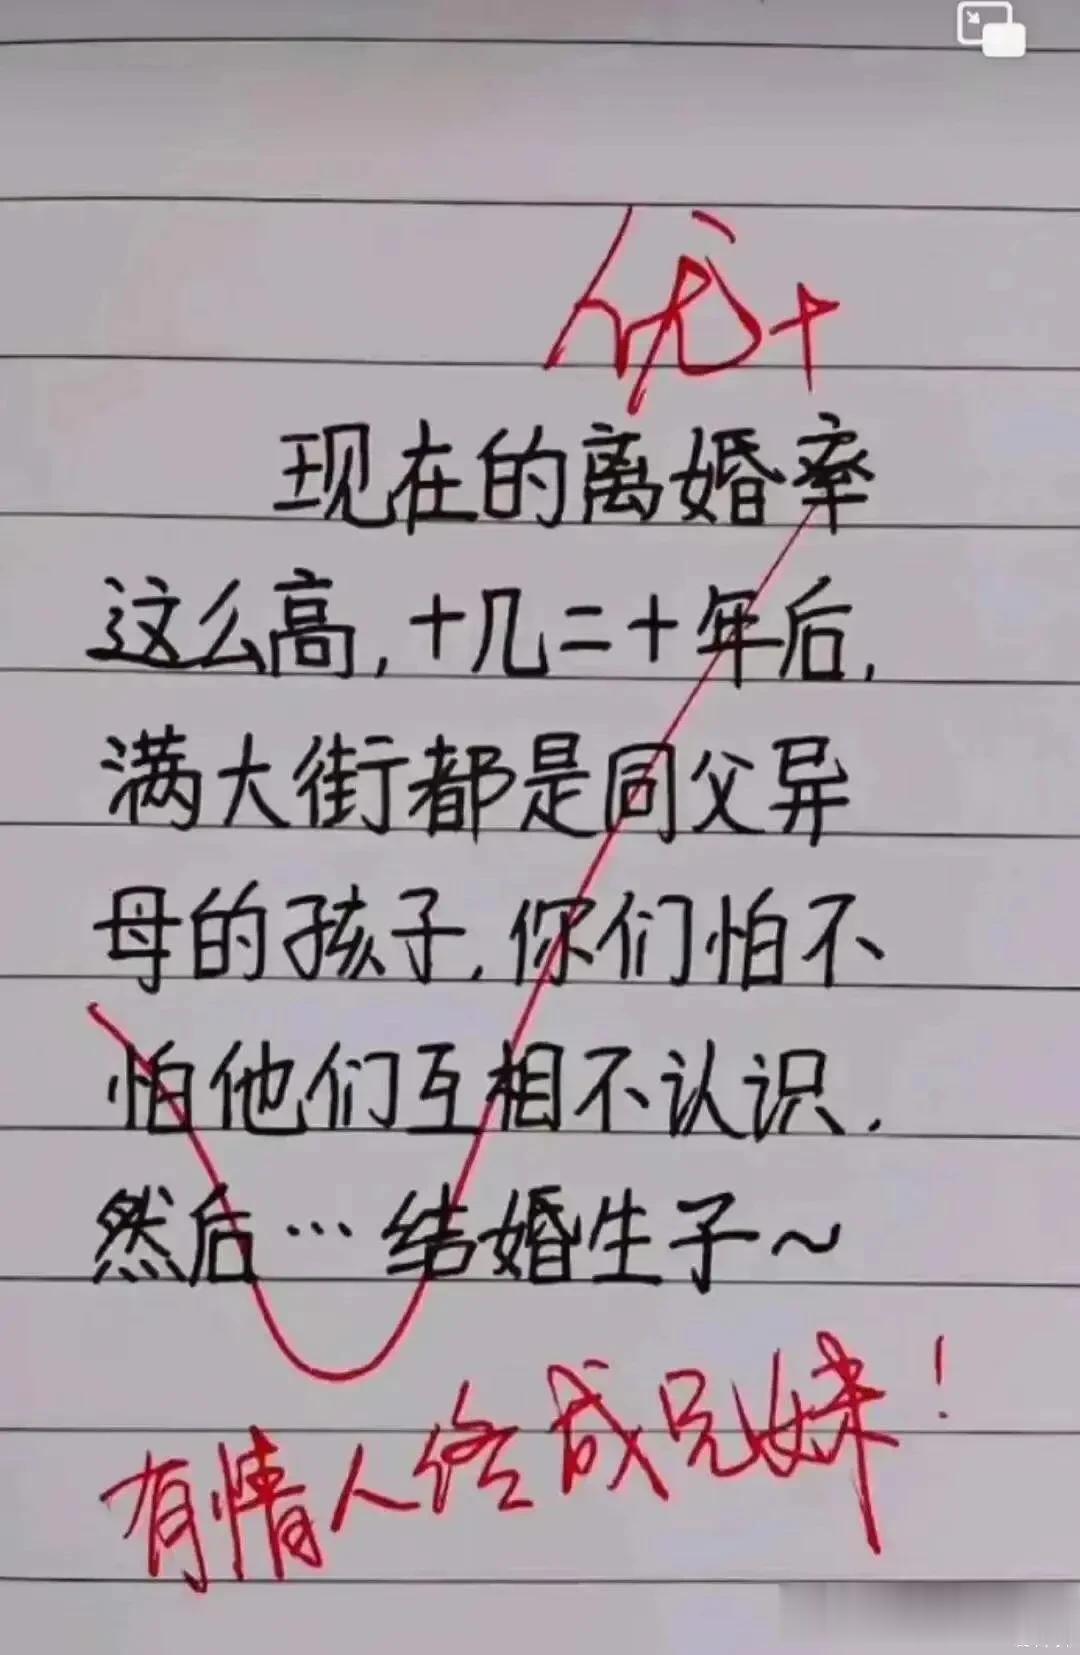 优+
现在的离婚率
这么高,十几二十年后,
满大街都是同父异
母的孩子,你们怕不
怕他们互相不认识.
然后…结婚生子~
有情人终成兄妹!